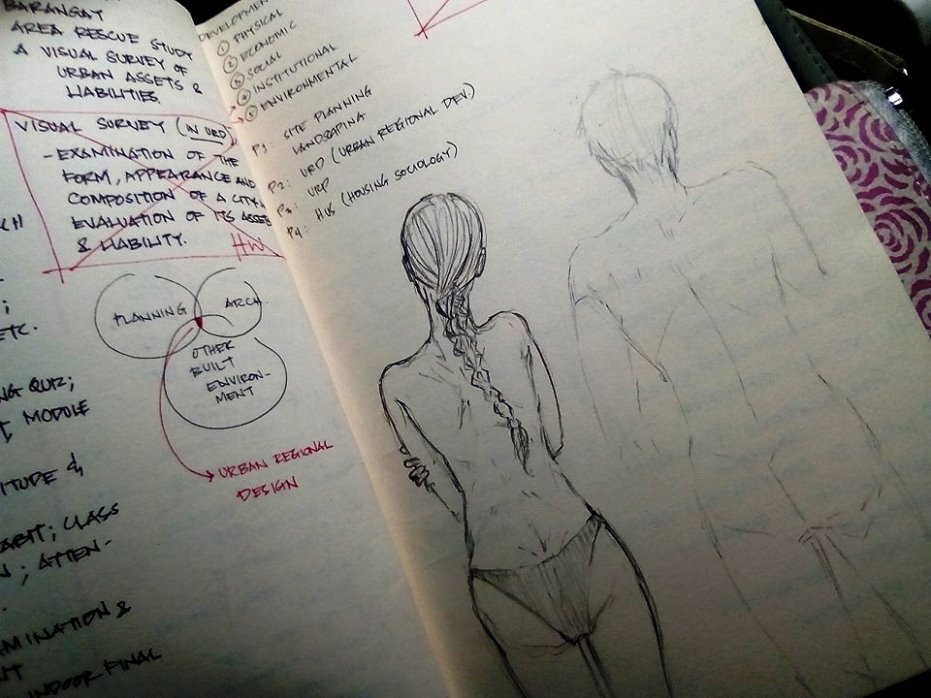 BARANGAY
AREA RESCUE STUDY
A VISUAL SURVEY OF
URBAN ASSETS &
LIABILITIES.
VISUAL SURVEY (IN URD)
-EXAMINATION OF THE
FORM, APPEARANCE AND
COMPOSITION OF A CITY.
EVALUATION OF ITS ASSETS
& LIABILITY.
HW
PLANNING
ARCH.
OTHER
BUILT
ENVIRON-
MENT
URBAN REGIONAL
DESIGN
;
ETC.
QUIZ;
MODULE
&
; CLASS
; ATTEN-
&
INDOOR FINAL
DEVELOPMENT
① PHYSICAL
② ECONOMIC
③ SOCIAL
④ INSTITUTIONAL
⑤ ENVIRONMENTAL
P1 SITE PLANNING
LANDSCAPING
P2: URD (URBAN REGIONAL DEV)
P3: URP
P4: HUS (HOUSING SOCIOLOGY)